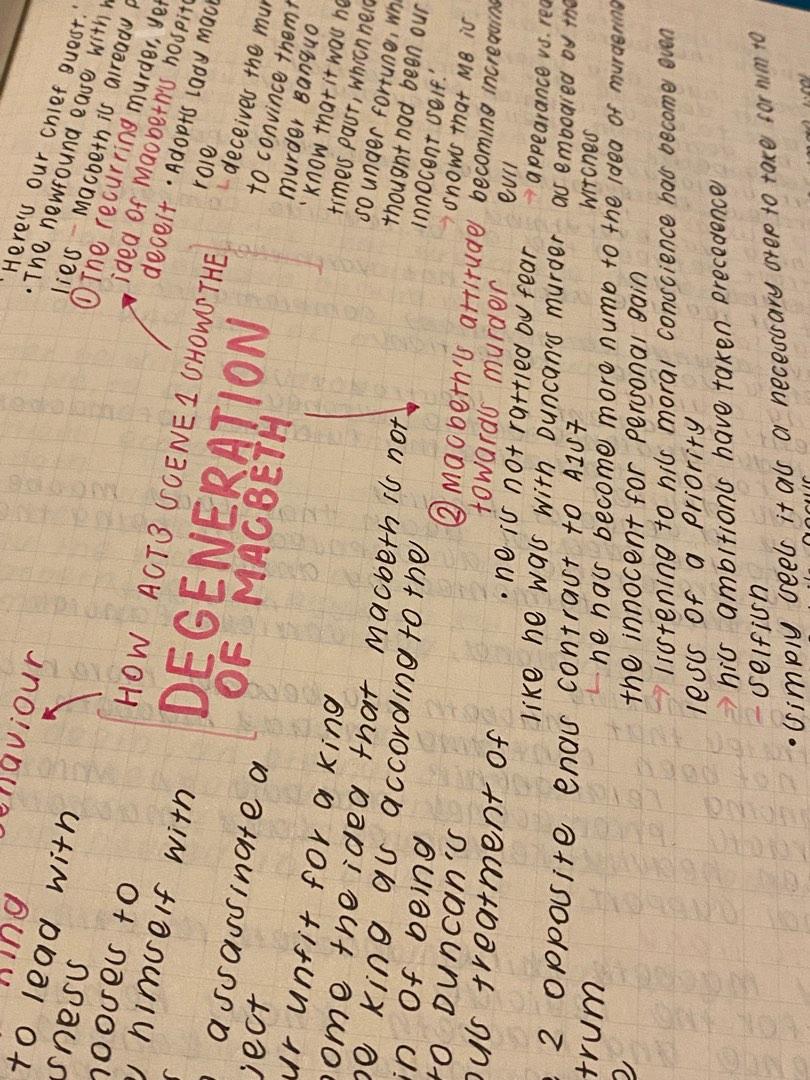 HOW ACT 3 SCENE 1 SHOWS THE
DEGENERATION
OF MACBETH
'Here's our chief guest.'
• The newfound ease with
lies - Macbeth is already
① The recurring murder,
idea of Macbeth's hospit
deceit • Adopts lady macb
role
deceives the mur
to convince them t
murder Banquo
'know that it was he
times past, which held
so under fortune, wh
thought had been our
innocent self.'
→ shows that MB is
becoming increasing
evil
→ appearance vs. rea
as embodied by the
witches
② Macbeth's attitude
towards murder
• he is not rattled by fear
like he was with Duncan's murder
contrast to A1S7
he has become more numb to the idea of murdering
the innocent for personal gain
→ listening to his moral conscience has become even
less of a priority
→ his ambitions have taken precedence
- selfish
• simply sees it as a necessary step to take for him to
ehaviour
to lead with
sness
hooses to
himself with
assassinate a
ject
ur unfit for a king
ome the idea that Macbeth is not
e king as according to the
in of being
to Duncan's
ous treatment of
2 opposite ends
trum